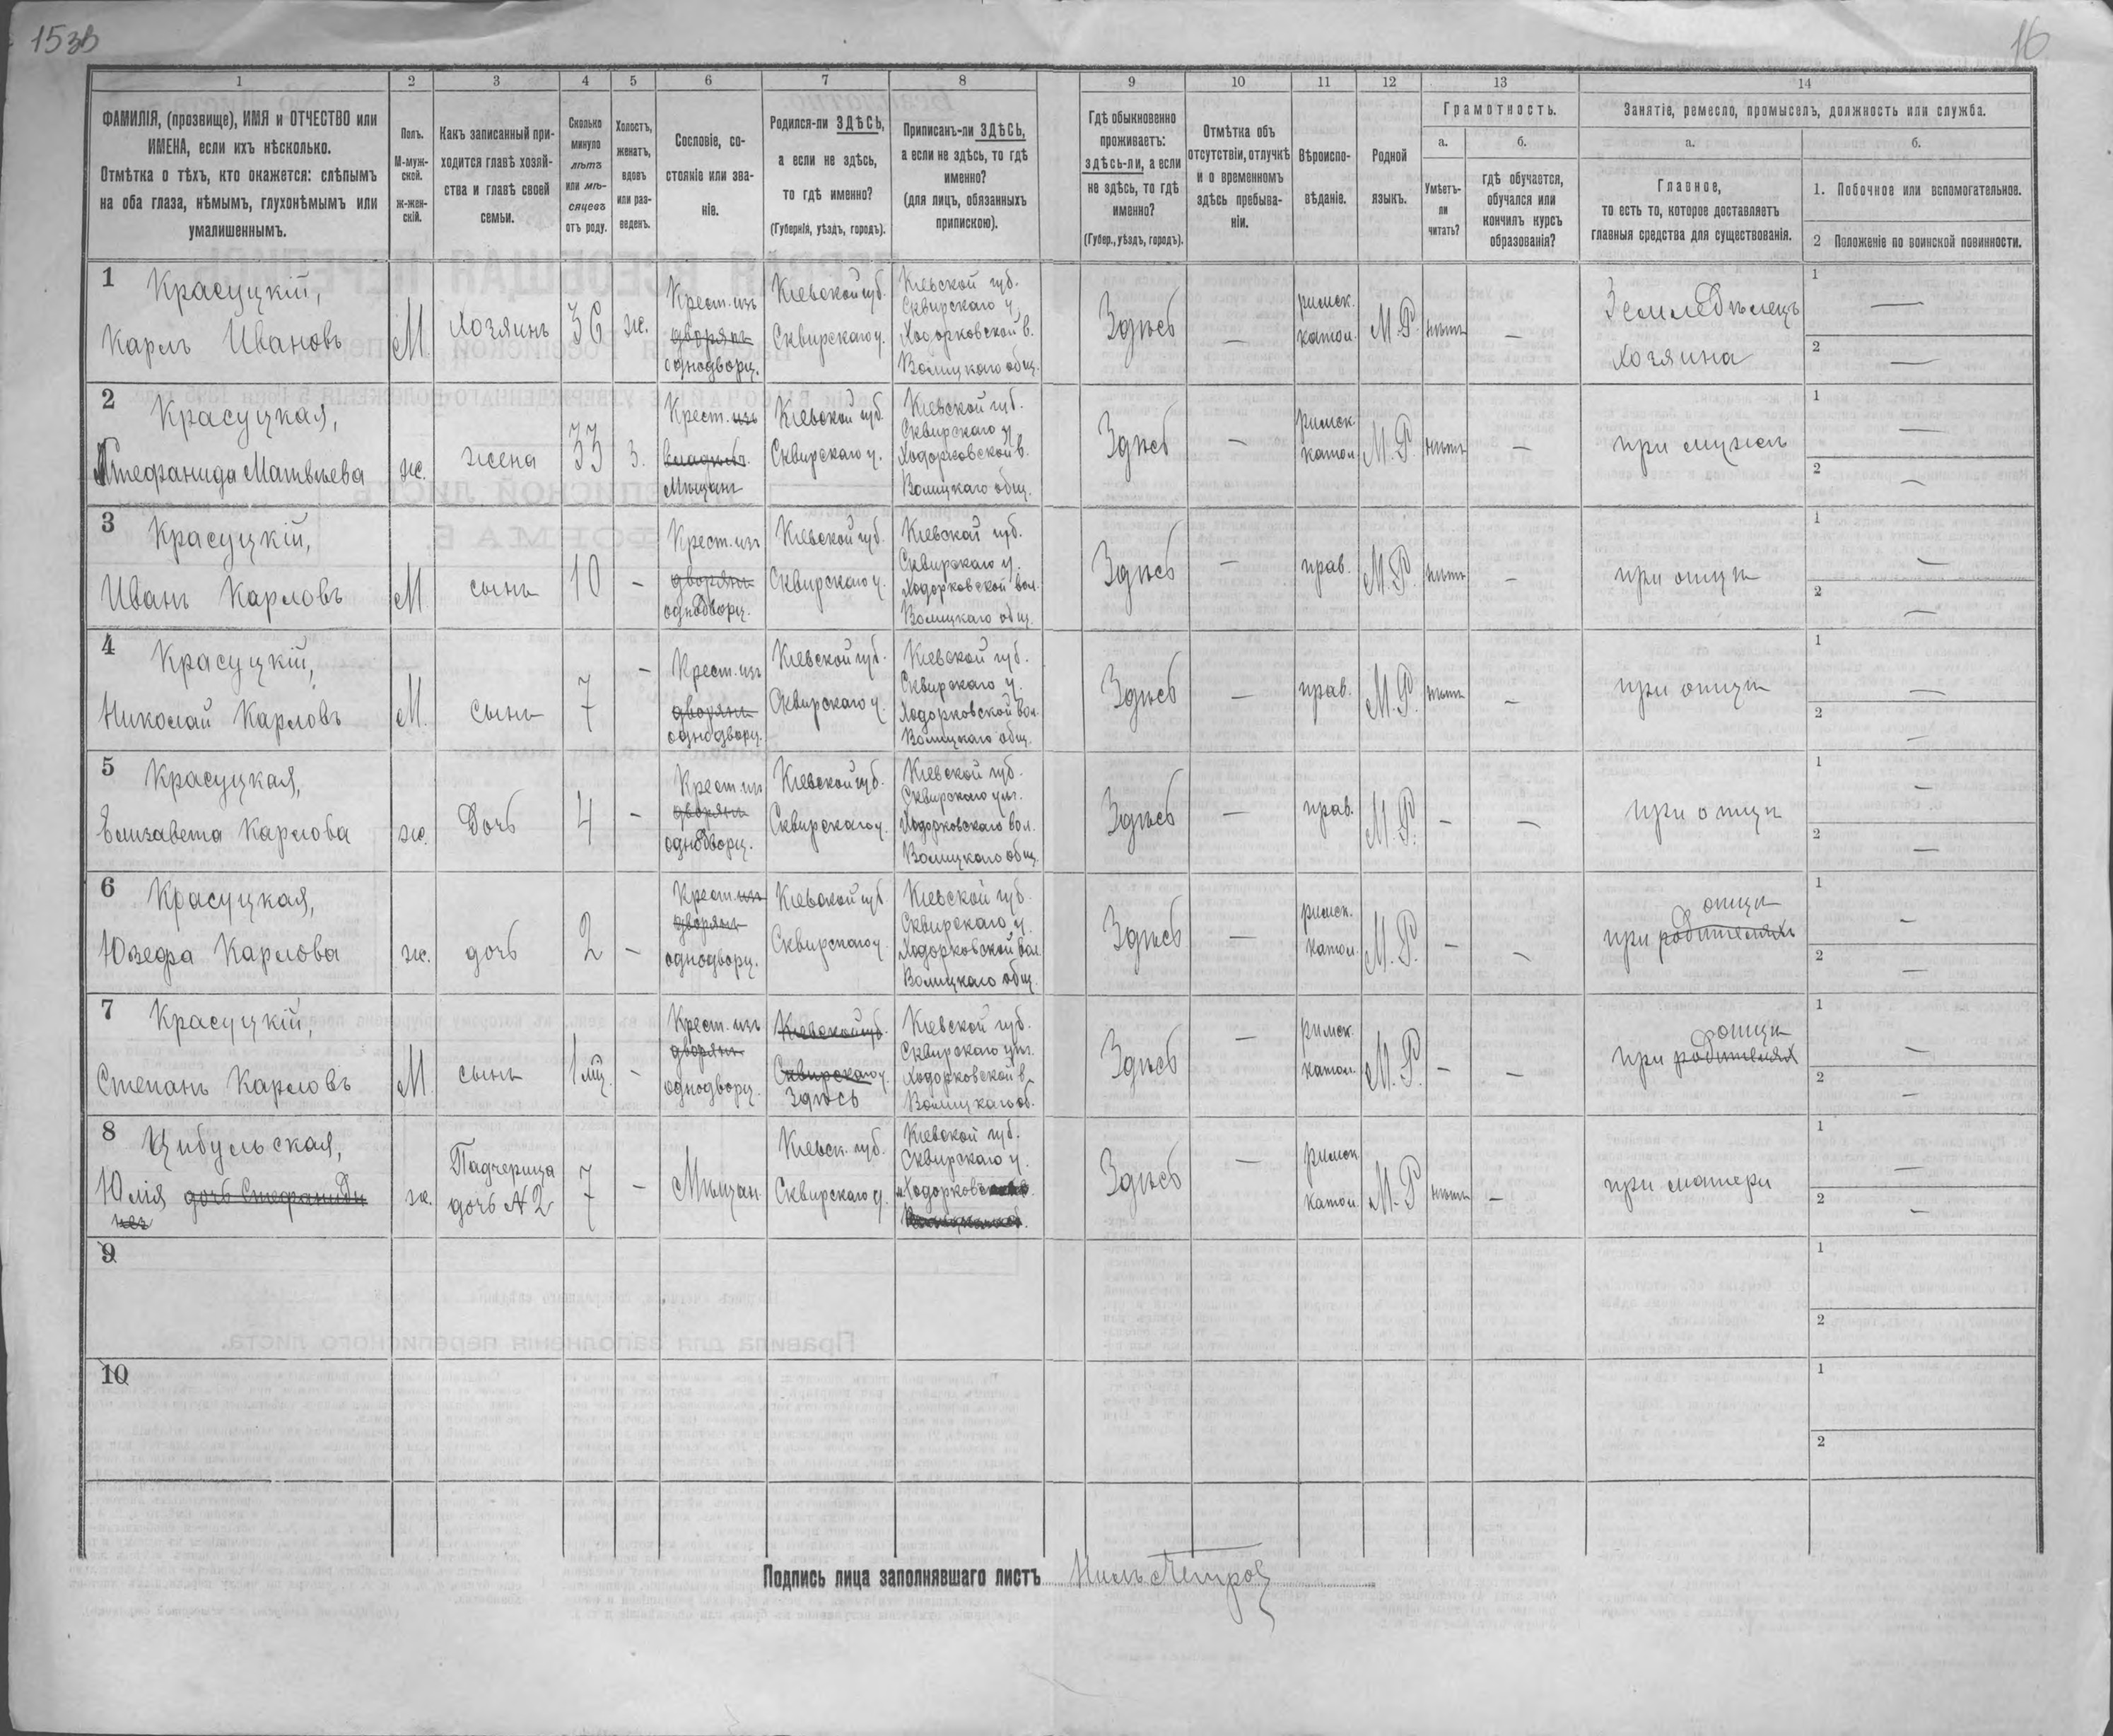 153в
16
1
2
3
4
5
6
7
8
9
10
11
12
13
14
ФАМИЛІЯ, (прозвище), ИМЯ и ОТЧЕСТВО или
ИМЕНА, если ихъ нѣсколько.
Отмѣтка о тѣхъ, кто окажется: слѣпымъ
на оба глаза, нѣмымъ, глухонѣмымъ или
умалишеннымъ.
Полъ.
М-муж-
ской.
ж-жен-
скій.
Какъ записанный при-
ходится главѣ хозяй-
ства и главѣ своей
семьи.
Сколько
минуло
лѣтъ
или мѣ-
сяцевъ
отъ роду.
Холостъ,
женатъ,
вдовъ
или раз-
веденъ.
Сословіе, со-
стояніе или зва-
ніе.
Родился-ли ЗДѢСЬ,
а если не здѣсь,
то гдѣ именно?
(Губернія, уѣздъ, городъ).
Приписанъ-ли ЗДѢСЬ,
а если не здѣсь, то гдѣ
именно?
(для лицъ, обязанныхъ
припискою).
Гдѣ обыкновенно
проживаетъ:
здѣсь-ли, а если
не здѣсь, то гдѣ
именно?
(Губер., уѣздъ, городъ).
Отмѣтка объ
отсутствіи, отлучкѣ
и о временномъ
здѣсь пребыва-
ніи.
Вѣроиспо-
вѣданіе.
Родной
языкъ.
Грамотность.
а.
Умѣетъ-
ли
читать?
б.
гдѣ обучается,
обучался или
кончилъ курсъ
образованія?
Занятіе, ремесло, промыселъ, должность или служба.
а.
Главное,
то есть то, которое доставляетъ
главныя средства для существованія.
б.
1. Побочное или вспомогательное.
2 Положеніе по воинской повинности.
1
Красуцкій,
Карлъ Ивановъ
М
Хозяинъ
36
ж.
Крест. изъ
дворянъ
однодворц.
Кіевской губ.
Сквирскаго у.
Кіевской губ.
Сквирскаго у.
Ходорковской в.
Волицкаго общ.
Здѣсь
—
римск.
катол.
М.Р.
нѣтъ
—
Земледѣлецъ
хозяина
1 —
2 —
2
Красуцкая,
Стефанида Матвѣева
ж.
жена
33
З.
Крест. изъ
Мѣщанъ
Кіевской губ.
Сквирскаго у.
Кіевской губ.
Сквирскаго у.
Ходорковской в.
Волицкаго общ.
Здѣсь
—
римск.
катол.
М.Р.
нѣтъ
—
при мужѣ
1 —
2 —
3
Красуцкій,
Иванъ Карловъ
М
сынъ
10
-
Крест. изъ
дворянъ
однодворц.
Кіевской губ.
Сквирскаго у.
Кіевской губ.
Сквирскаго у.
Ходорковской вол.
Волицкаго общ.
Здѣсь
—
прав.
М.Р.
нѣтъ
—
при отцѣ
1 —
2 —
4
Красуцкій,
Николай Карловъ
М.
сынъ
7
-
Крест. изъ
дворянъ
однодворц.
Кіевской губ.
Сквирскаго у.
Кіевской губ.
Сквирскаго у.
Ходорковской вол.
Волицкаго общ.
Здѣсь
—
прав.
М.Р.
нѣтъ
—
при отцѣ
1 —
2 —
5
Красуцкая,
Елизавета Карлова
ж.
Дочь
4
-
Крест. изъ
дворянъ
однодворц.
Кіевской губ.
Сквирскаго у.
Кіевской губ.
Сквирскаго уѣз.
Ходорковскаго вол.
Волицкаго общ.
Здѣсь
—
прав.
М.Р.
-
—
при отцѣ
1 —
2 —
6
Красуцкая,
Юзефа Карлова
ж.
дочь
2
-
Крест. изъ
дворянъ
однодворц.
Кіевской губ
Сквирскаго у.
Кіевской губ.
Сквирскаго у.
Ходорковской вол.
Волицкаго общ.
Здѣсь
—
римск.
катол.
М.Р.
-
—
отцѣ
при родителяхъ
1 —
2 —
7
Красуцкій,
Степанъ Карловъ
М.
сынъ
1 мц.
-
Крест. изъ
дворянъ
однодворц.
Кіевской губ.
Сквирскаго у.
Здѣсь
Кіевской губ.
Сквирскаго уѣз.
Ходорковской в.
Волицкаго об.
Здѣсь
—
римск.
катол.
М.Р.
-
—
отцѣ
при родителяхъ
1 —
2 —
8
Цибульская,
Юлія дочь Стефаниды
ж.
Падчерица
дочь № 2
7
-
Мѣщан.
Кіевск. губ.
Сквирскаго у.
Кіевской губ.
Сквирскаго у.
Здѣсь
—
римск
катол.
М.Р
нѣтъ
—
при матери
1 —
2 —
9
1
2
10
1
2
Подпись лица заполнявшаго листъ